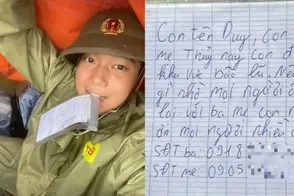 Con tên Duy, con
mẹ Thủy nay con đ
khu vực bão lũ. Nế
gì nhờ mọi người
lại với ba mẹ con
ơn mọi người nhiều
SĐT ba: 0918
SĐT mẹ: 0905